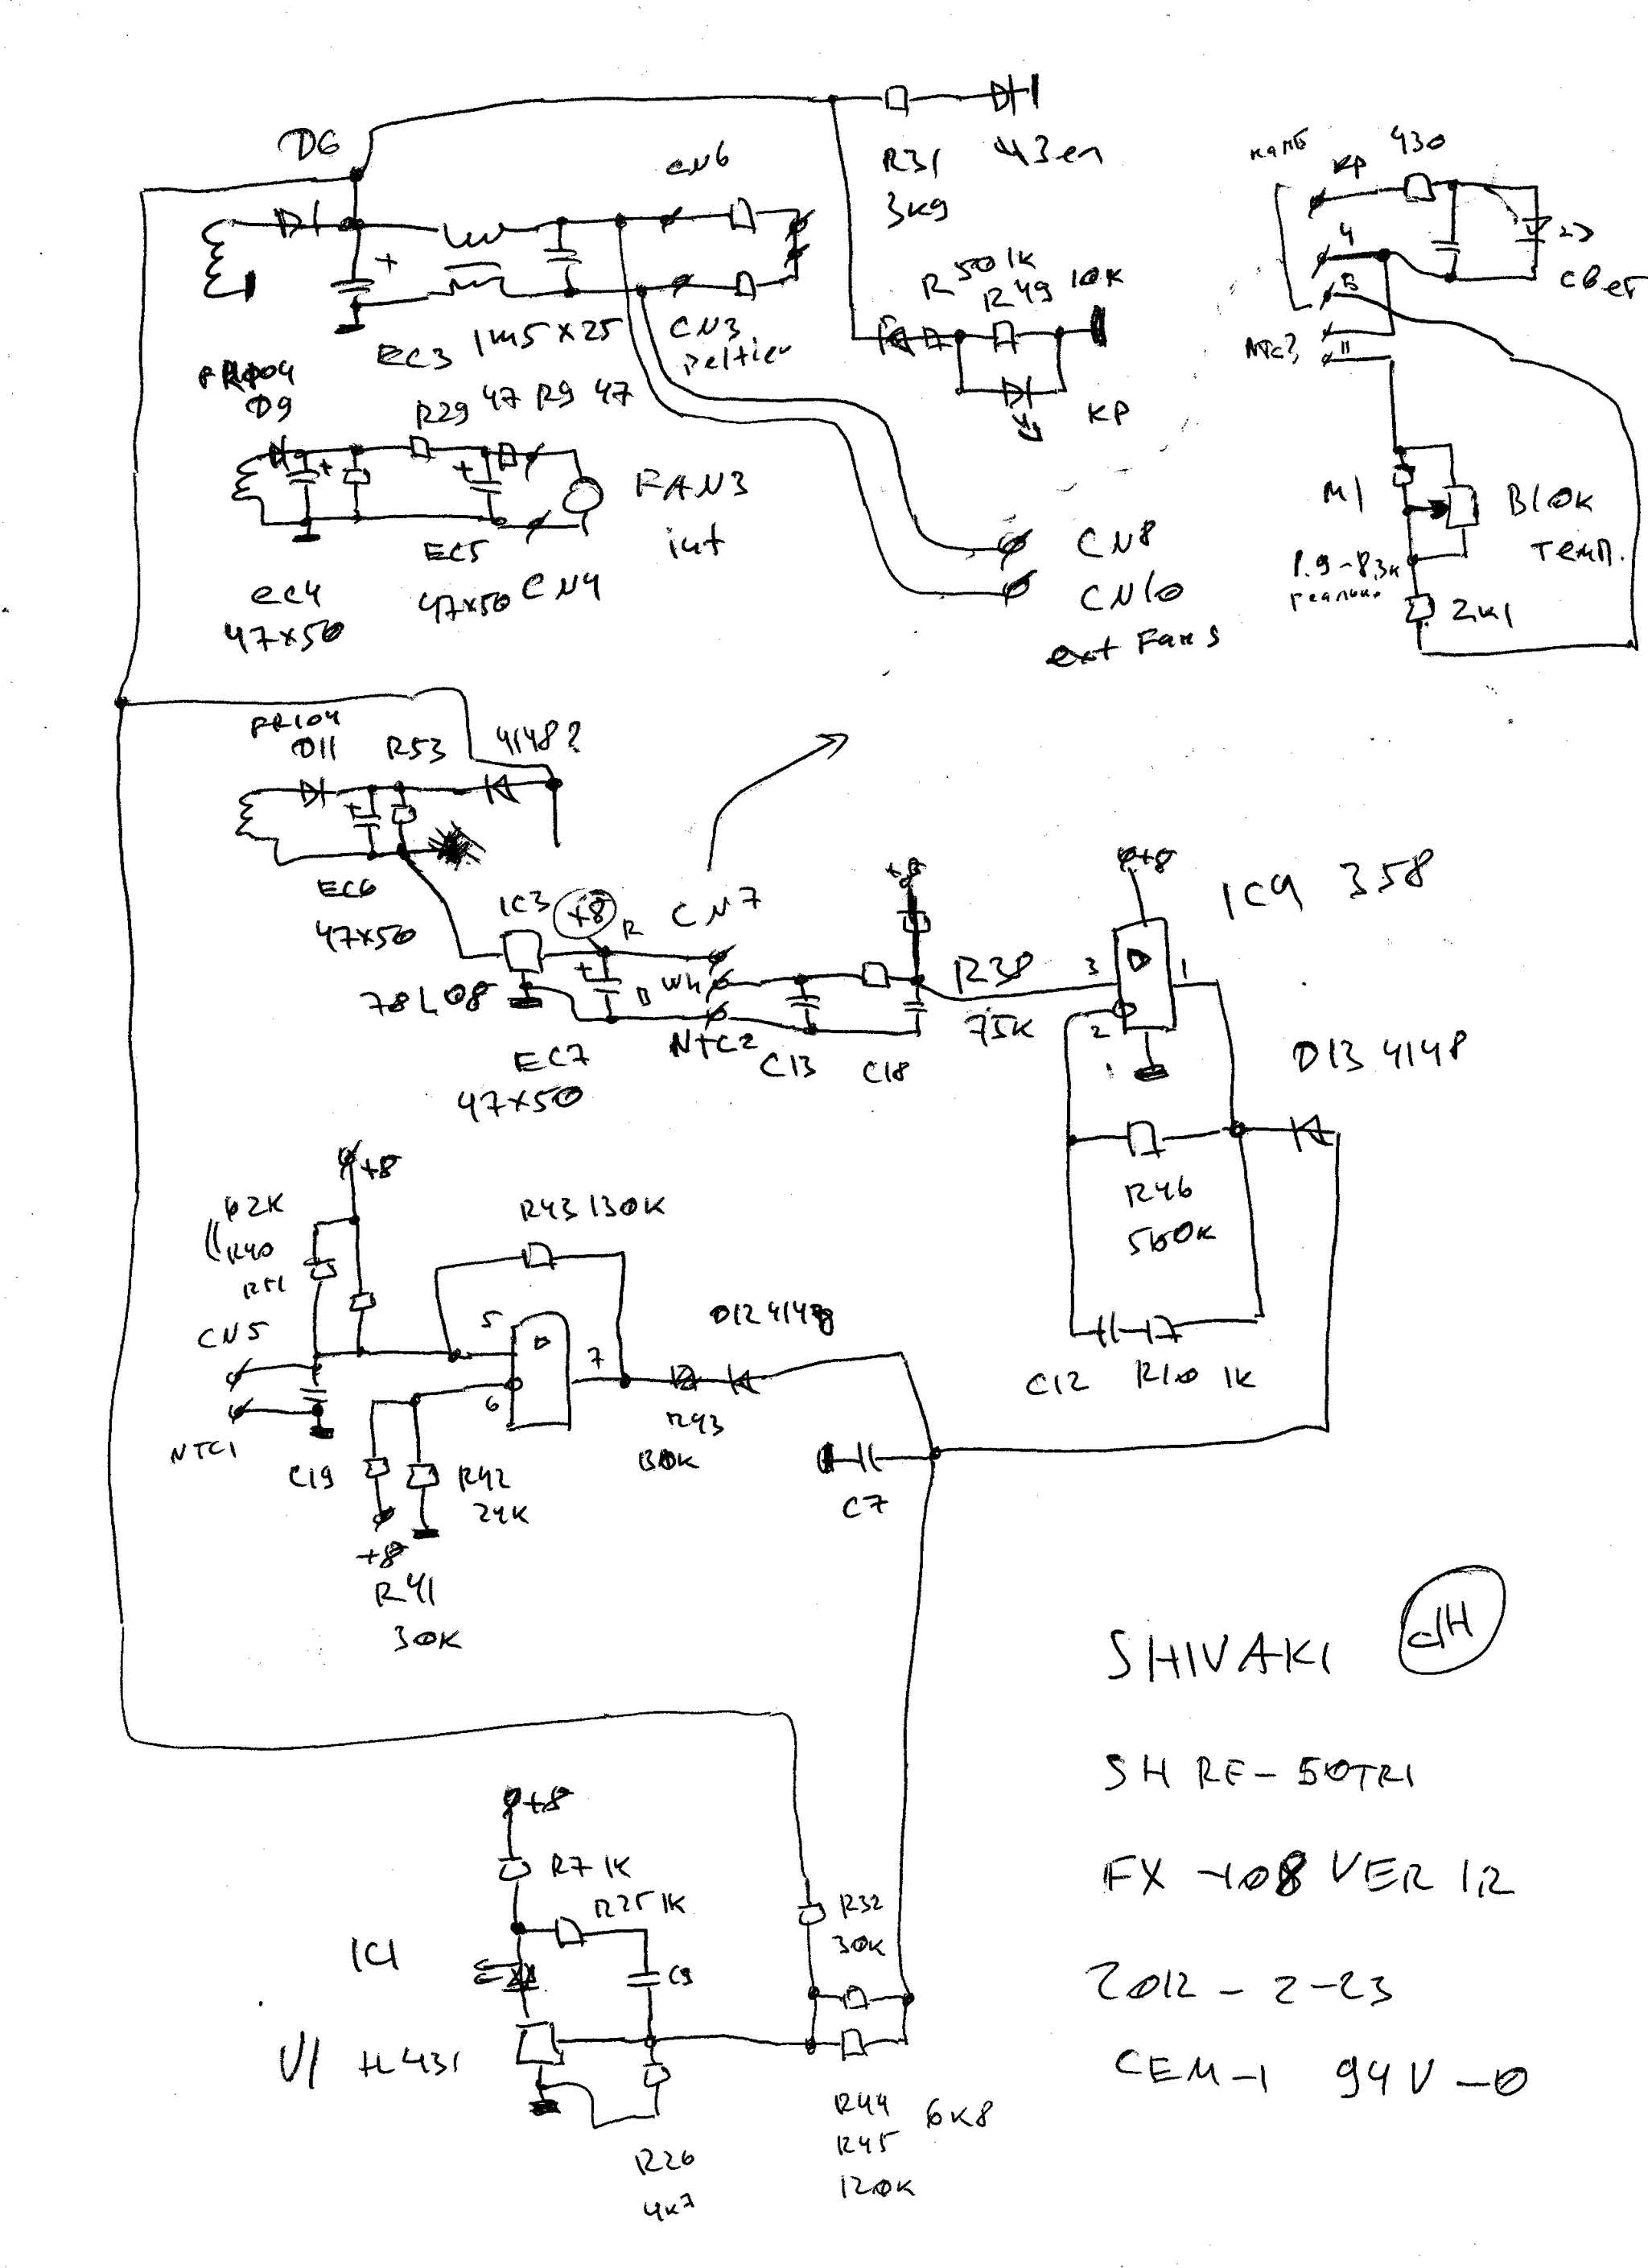 D6
CN6
R31
3K9
430
KP
4
B
свет
+
EC3
1m5 x 25
CN3
peltier
R50 1K
R49 10K
KP
FR104
D9
R29 47 R9 47
+
+
FAN3
int
EC5
47x50
CN4
EC4
47x50
CN8
CN10
ext Fans
M1
Блок
темп.
1.9-8.3к
реально
2K1
FR104
D11
R53
4148?
+
EC6
47x50
IC3
+8
R
CN7
78L08
+
B
Wh
NTC2
EC7
47x50
C13
C18
+8
R38
75K
+8
IC4 358
3
1
2
D13 4148
R46
560K
C12
R10 1K
+8
62K
R40
R51
CN5
NTC1
C19
R43 130K
5
6
7
D12 4148
R42
24K
+8
R41
30K
R43
C7
SHIVAKI
SH RE-50TR1
FX-108 VER 1.2
2012-2-23
CEM-1 94V-0
+8
R7 1K
R25 1K
IC1
C9
U1 tL431
R32
30K
R44 6K8
R45
120K
R26
4K7